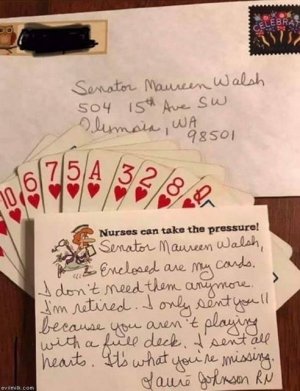 CELEBRATE
Senator Maureen Walsh
504 15th Ave SW
Olympia, WA
98501
10 6 7 5 A 3 2 8 Q
Nurses can take the pressure!
Senator Maureen Walsh,
Enclosed are my cards.
I don't need them anymore.
I'm retired. I only sent you 11
because you aren't playing
with a full deck. I sent all
hearts. It's what you're missing.
Laurie Johnson RN
evilmilk.com